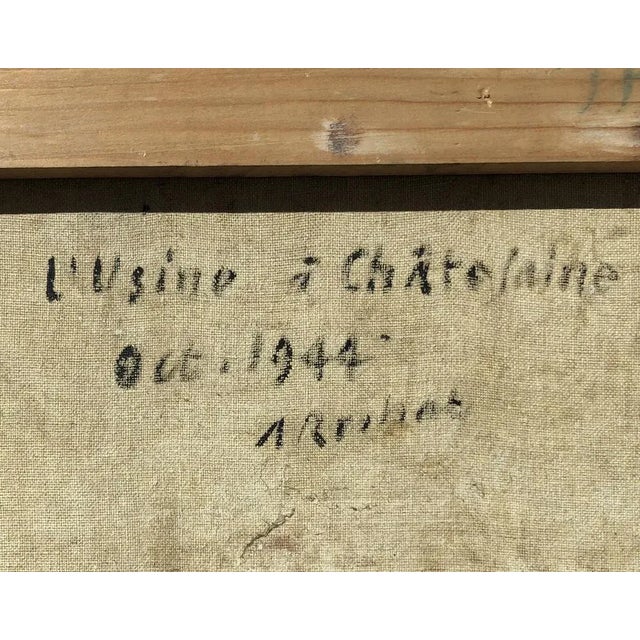 L'Usine à Châtelaine
Oct. 1944